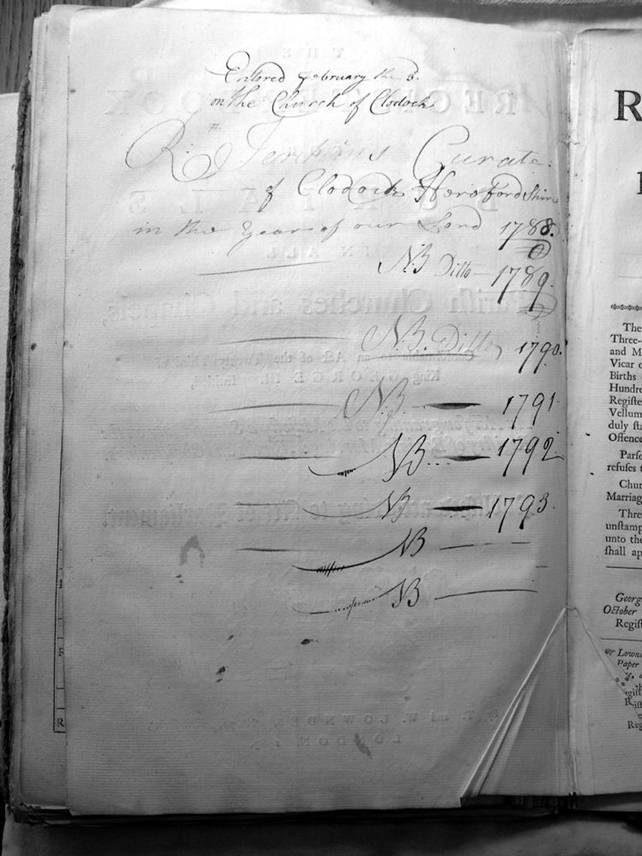 Entered February the 3.
on the Church of Clodock
R J Jenkins Curate.
of Clodock Herefordshire
in the Year of our Lord 1788.
NB Ditto 1789.
NB. Ditto 1790.
NB. 1791
NB.. 1792
NB 1793.
NB
NB
R
1
The
Three-
and M
Vicar o
Births
Hundre
Registe
Vellum
duly sta
Offence
Parso
refuses t
Chur
Marriag
Thre
unstamp
unto the
shall ap
Georg
October
Regist
Lown
Paper